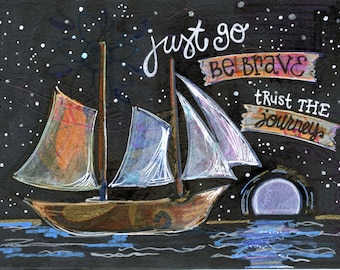 just go
BE BRAVE
tRUST THE
Journey